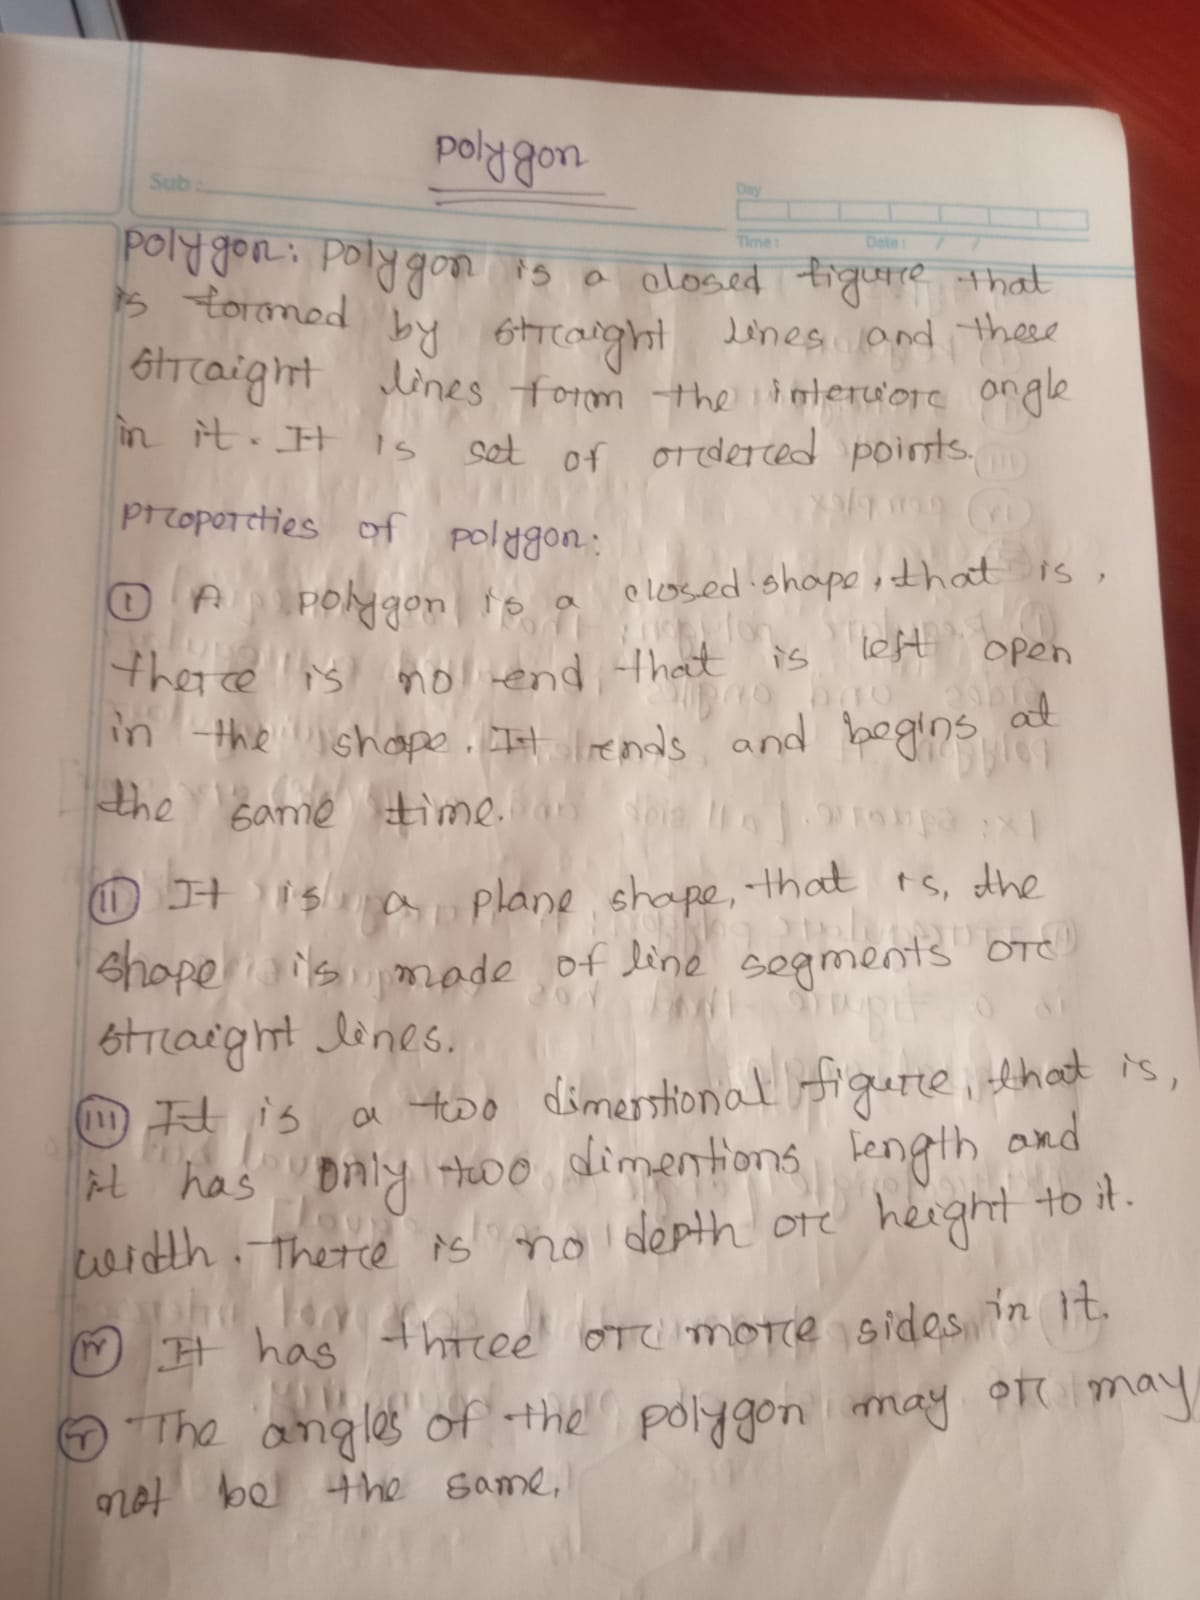 polygon
Sub:
Day
Time: Date: / /
polygon: polygon is a closed figure that
is formed by straight lines and these
straight lines form the interiore angle
in it. It is set of ordered points.
properties of polygon:
(i) A polygon is a closed shape, that is,
there is no end that is left open
in the shape. It ends and begins at
the same time.
(ii) It is a plane shape, that is, the
shape is made of line segments or
straight lines.
(iii) It is a two dimentional figure, that is,
it has only two dimentions length and
width. There is no depth or height to it.
(iv) It has three or more sides in it.
(v) The angles of the polygon may or may
not be the same.